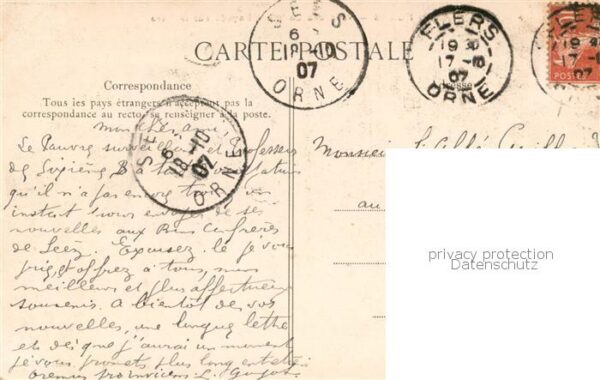 CARTE POSTALE
SEES
6
18-10
07
ORNE
FLERS
19 30
17-8
07
ORNE
19
17-
07
POSTES
Correspondance
Tous les pays étrangers n'acceptent pas la
correspondance au recto, se renseigner à la poste.
mon cher ami,
Le Pauvre surveillant et professeur
de Sixième B a tant
qu'il n'a pas encore trouvé un
instant pour envoyer de ses
nouvelles aux Bons Confrères
de Séez. Excusez le je vous
prie et offrez à tous, mes
meilleurs et plus affectueux
souvenirs. A bientôt de vos
nouvelles, une longue lettre
et dès que j'aurai un moment
je vous promets plus long entretien
Oremus pro invicem L.
SEES
6
18-10
07
ORNE
Monsieur l'Abbé
au
privacy protection
Datenschutz